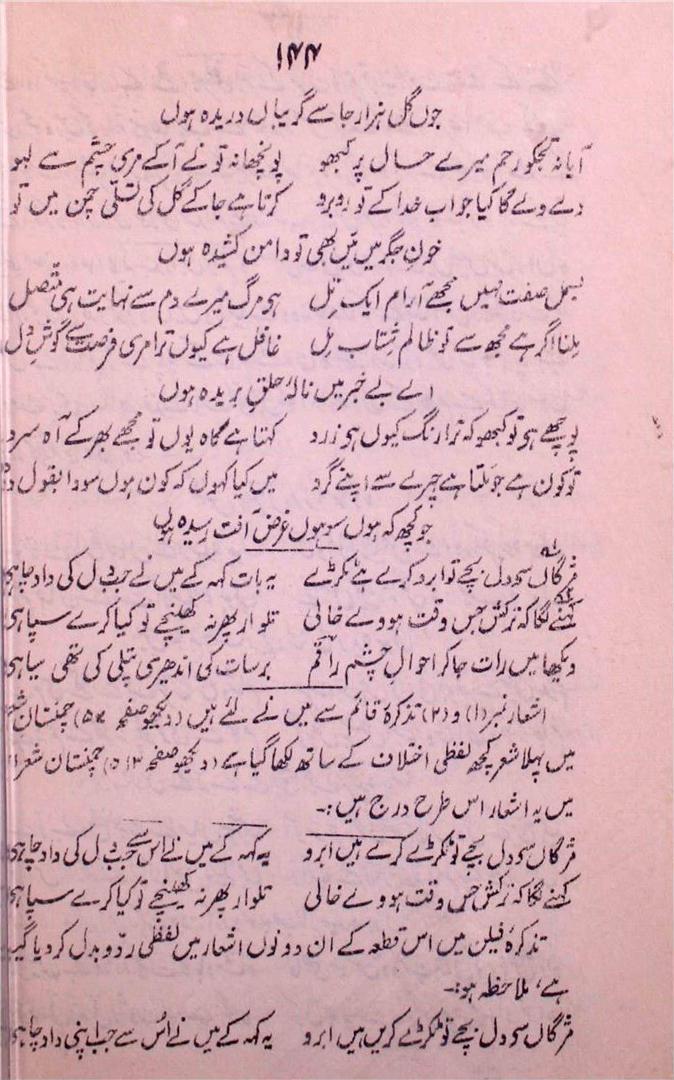 ۱۴۴
جوں گل ہزار جا سے گریباں دریدہ ہوں
آیا نہ تجکو رحم میرے حال پر کبھو پونچھا نہ تو نے آکے مری چشم سے لہو
دے وے گا کیا جواب خدا کے تو روبرو کرتا ہے جا کے گل کی تسلّی چمن میں تو
خونِ جگر میں مَیں بھی تو دامن کشیدہ ہوں
بسمل صفت نہیں مجھے آرام ایک تِل ہو مرگ میرے دم سے نہایت ہی متّصل
مِلنا اگر ہے مجھ سے تو ظالم شتاب مِل غافل ہے کیوں ترا مری فرصت سے گوشِ دل
اے بے خبر میں نالۂ حلقِ بریدہ ہوں
پوچھے ہو تو کبھو کہ ترا رنگ کیوں ہو زرد کہتا ہے گاہ یوں تو مجھے بھر کے آہ سرد
تو کون ہے جو مَلتا ہے چہرے سے اپنے گرد میں کیا کہوں کہ کون ہوں سودا بقول
جو کچھ کہ ہوں سو ہوں غرض آفت رسیدہ ہوں
مژگاں سے دل بچے تو ابرو کرے ہے ٹکڑے یہ بات کہہ کے میں نے جب دل کی داد چاہی
کہنے لگا کہ ترکش جس وقت ہووے خالی تلوار پھر نہ کھینچے تو کیا کرے سپاہی
دیکھا میں رات جا کر احوالِ چشم راقم برسات کی اندھیری پتلی کی تھی سیاہی
اشعار نمبر (۱) و (۲) تذکرۂ قائم سے میں نے لئے ہیں (دیکھو صفحہ ۵۷) چمنستان
میں پہلا شعر کچھ لفظی اختلاف کے ساتھ لکھا گیا ہے (دیکھو صفحہ ۵۱۳) چمنستان شعرا
میں یہ اشعار اس طرح درج ہیں :۔
مژگاں سے دل بچے تو ٹکڑے کرے ہیں ابرو یہ کہہ کے میں نے اس سے جب دل کی داد چاہی
کہنے لگا کہ ترکش جس وقت ہووے خالی تلوار پھر نہ کھینچے تو کیا کرے سپاہی
تذکرۂ فیلن میں اس قطعہ کے ان دونوں اشعار میں لفظی ردّ و بدل کر دیا گیا
ہے، ملاحظہ ہو :۔
مژگاں سے دل بچے تو ٹکڑے کریں ہیں ابرو یہ کہہ کے میں نے اُس سے جب اپنی داد چاہی